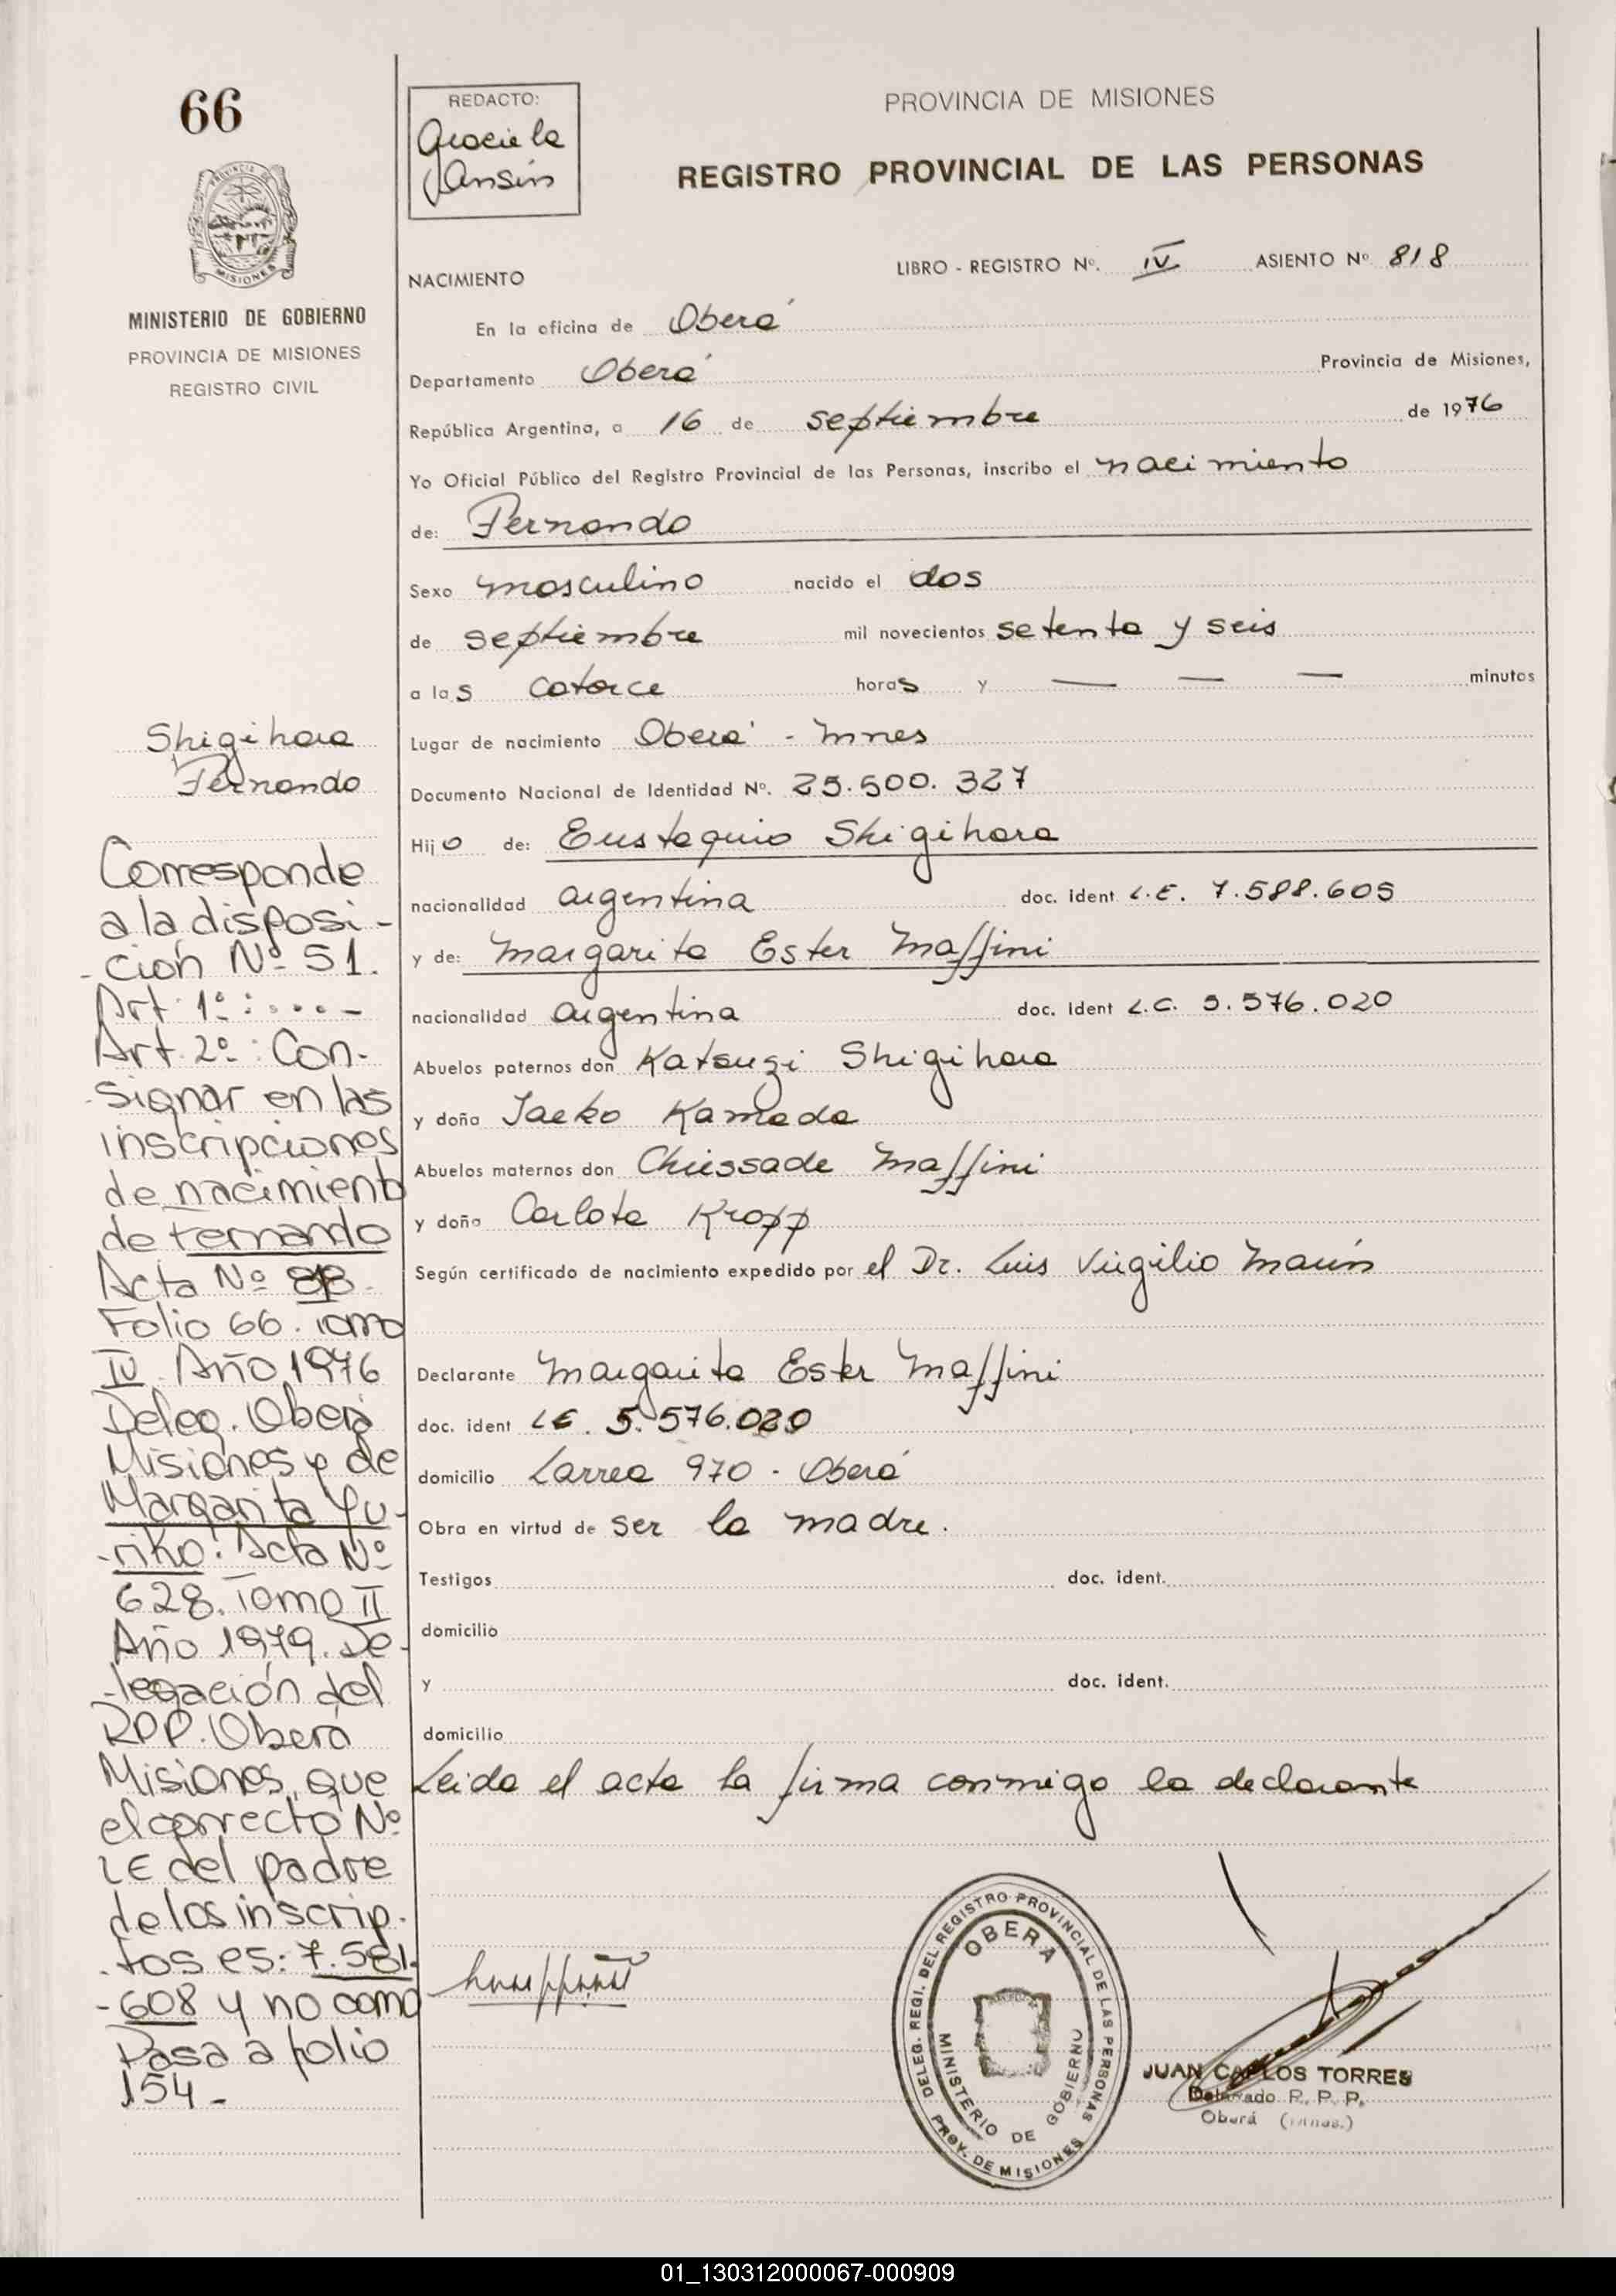 66
PROVINCIA DE MISIONES
MINISTERIO DE GOBIERNO
PROVINCIA DE MISIONES
REGISTRO CIVIL
Shigihara
Fernando
Corresponde
a la disposi-
-ción Nº 51.
Art. 1º: . . . . -
Art. 2º: Con-
-signar en las
inscripciones
de nacimiento
de Fernando
Acta Nº 818.
Folio 66. Tomo
IV. Año 1976
Deleg. Oberá
Misiones y de
Margarita Yu-
-riko. Acta Nº
628. Tomo II
Año 1979. De-
-legación del
RPP. Oberá
Misiones, que
el correcto Nº
LE del padre
de los inscrip-
-tos es: 7.581.
-608 y no como
Pasa a folio
154-
REDACTO:
Graciela
Jansin
PROVINCIA DE MISIONES
REGISTRO PROVINCIAL DE LAS PERSONAS
LIBRO - REGISTRO Nº. IV ASIENTO Nº 818
NACIMIENTO
En la oficina de Oberá
Departamento Oberá Provincia de Misiones,
República Argentina, a 16 de septiembre de 1976
Yo Oficial Público del Registro Provincial de las Personas, inscribo el nacimiento
de: Fernando
Sexo masculino nacido el dos
de septiembre mil novecientos setenta y seis
a las catorce horas y — — — minutos
Lugar de nacimiento Oberá - Mnes
Documento Nacional de Identidad Nº. 25.500.327
Hijo de: Eustaquio Shigihara
nacionalidad argentina doc. ident L.E. 7.588.605
y de: Margarita Ester Maffini
nacionalidad argentina doc. ident L.C. 5.576.020
Abuelos paternos don Katsuzi Shigihara
y doña Taeko Kamada
Abuelos maternos don Maffini
y doña Carlota Kropp
Según certificado de nacimiento expedido por el Dr. Luis Virgilio Marín
Declarante Margarita Ester Maffini
doc. ident 5.576.020
domicilio Larrea 970 - Oberá
Obra en virtud de ser la madre.
Testigos doc. ident.
domicilio
y doc. ident.
domicilio
Leida el acta la firma conmigo la declarante
DELEG. REGI. DEL REGISTRO PROVINCIAL DE LAS PERSONAS
OBERA
MINISTERIO DE GOBIERNO
PROV. DE MISIONES
JUAN CARLOS TORRES
Delegado R. P. P.
Oberá (Mnes.)
01_130312000067-000909